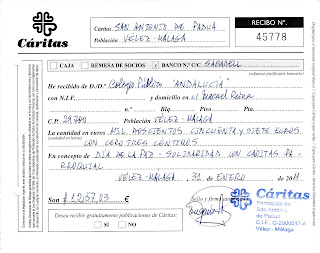 Cáritas SAN ANTONIO DE PADUA
Población VELEZ-MÁLAGA
RECIBO Nº.
45778
Cáritas
CAJA REMESA DE SOCIOS BANCO Nº C/C SABADELL
(adjuntar justificante bancario)
He recibido de D./Dª. Colegio Público "ANDALUCÍA"
con N.I.F. y domicilio en c/
nº. Blq. Piso Pta.
C.P. 29700 Población VELEZ-MÁLAGA
La cantidad en euros MIL DOSCIENTOS CINCUENTA Y SIETE EUROS
CON CERO TRES CENTIMOS
En concepto de DÍA DE LA PAZ - SOLIDARIDAD CON CARITAS PA-
RROQUIAL
VELEZ-MÁLAGA, 31 de ENERO de 2011
Son 1.257,03 €
Sello y firma
Desea recibir gratuitamente publicaciones de Cáritas:
SI NO
Cáritas
Parroquial de
San Antonio
de Padua
Vélez - Málaga